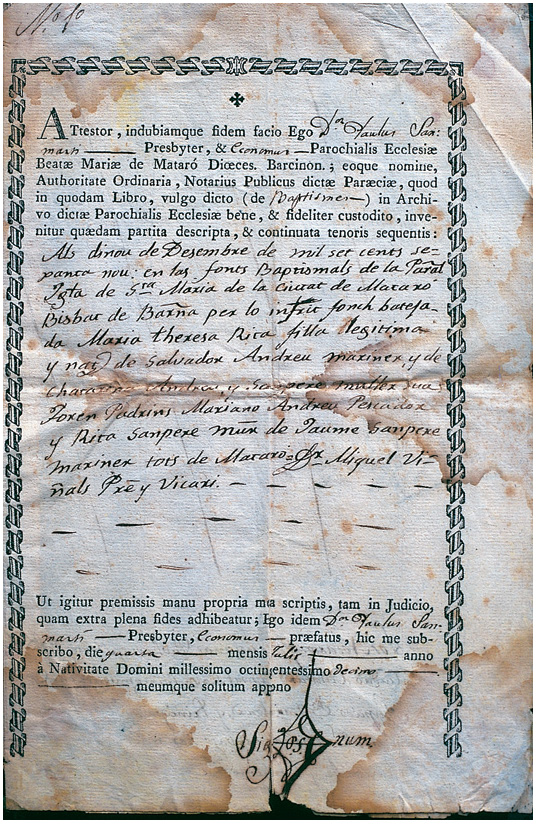 Attestor, indubiamque fidem facio Ego Dor. Paulus San=
martí Presbyter, & Economus Parochialis Ecclesiæ
Beatæ Mariæ de Mataró Diœces. Barcinon.; eoque nomine,
Authoritate Ordinaria, Notarius Publicus dictæ Paræciæ, quod
in quodam Libro, vulgo dicto (de Baptismes) in Archi-
vo dictæ Parochialis Ecclesiæ bene, & fideliter custodito, inve-
nitur quædam partita descripta, & continuata tenoris sequentis:
Als dinou de Desembre de mil set cents se-
tanta nou: en las fonts Baptismals de la Paral
Igta de Sta Maria de la Ciutat de Mataró
Bisbat de Barna per lo infrit fonch bateja-
da Maria Theresa Rita filla llegitima
y nat) de Salvador Andreu mariner, y de
Andreu, y Sanpere muller sua
Foren Padrins Mariano Andreu Pescador
y Rita Sanpere mūr de Jaume Sanpere
mariner tots de Mataró = Dr. Miquel Vi-
ñals Pre y Vicari.
Ut igitur premissis manu propria mea scriptis, tam in Judicio,
quam extra plena fides adhibeatur; Ego idem Dor. Paulus San=
martí Presbyter, Economus præfatus, hic me sub-
scribo, die quarta mensis Julii anno
à Nativitate Domini millessimo octingentessimo decimo
meumque solitum appno
Sig num